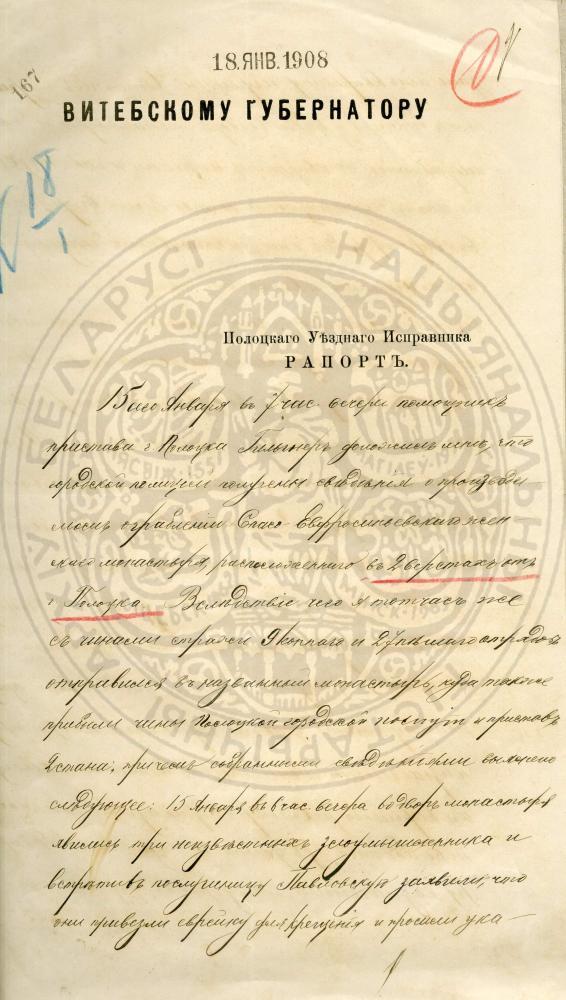 18.ЯНВ.1908
167
ВИТЕБСКОМУ ГУБЕРНАТОРУ
18
1
Полоцкаго Уѣзднаго Исправника
РАПОРТЪ.
15го Января въ 7 час. вечера помощникъ
пристава г. Полоцка доложилъ мнѣ, что
городской полиціей получены свѣдѣнія о произведен-
номъ ограбленіи Спасо-Евфросиніевскаго жен-
скаго монастыря, расположеннаго въ 2 верстахъ отъ
г. Полоцка. Вслѣдствіе чего я тотчасъ же
съ чинами стражи 9 коннаго и 27 пѣшаго отрядовъ
отправился въ названный монастырь, куда также
прибыли чины Полоцкой городской полиціи и приставъ
2 стана; причемъ собранными свѣдѣніями выяснено
слѣдующее: 15 Января въ 6 час. вечера во дворъ монастыря
явились три неизвѣстныхъ злоумышленника и
встрѣтивъ послушницу Павловскую заявили, что
они привезли еврейку для крещенія и просили ука-
НАЦЫЯНАЛЬНЫ
БЕЛАРУСІ